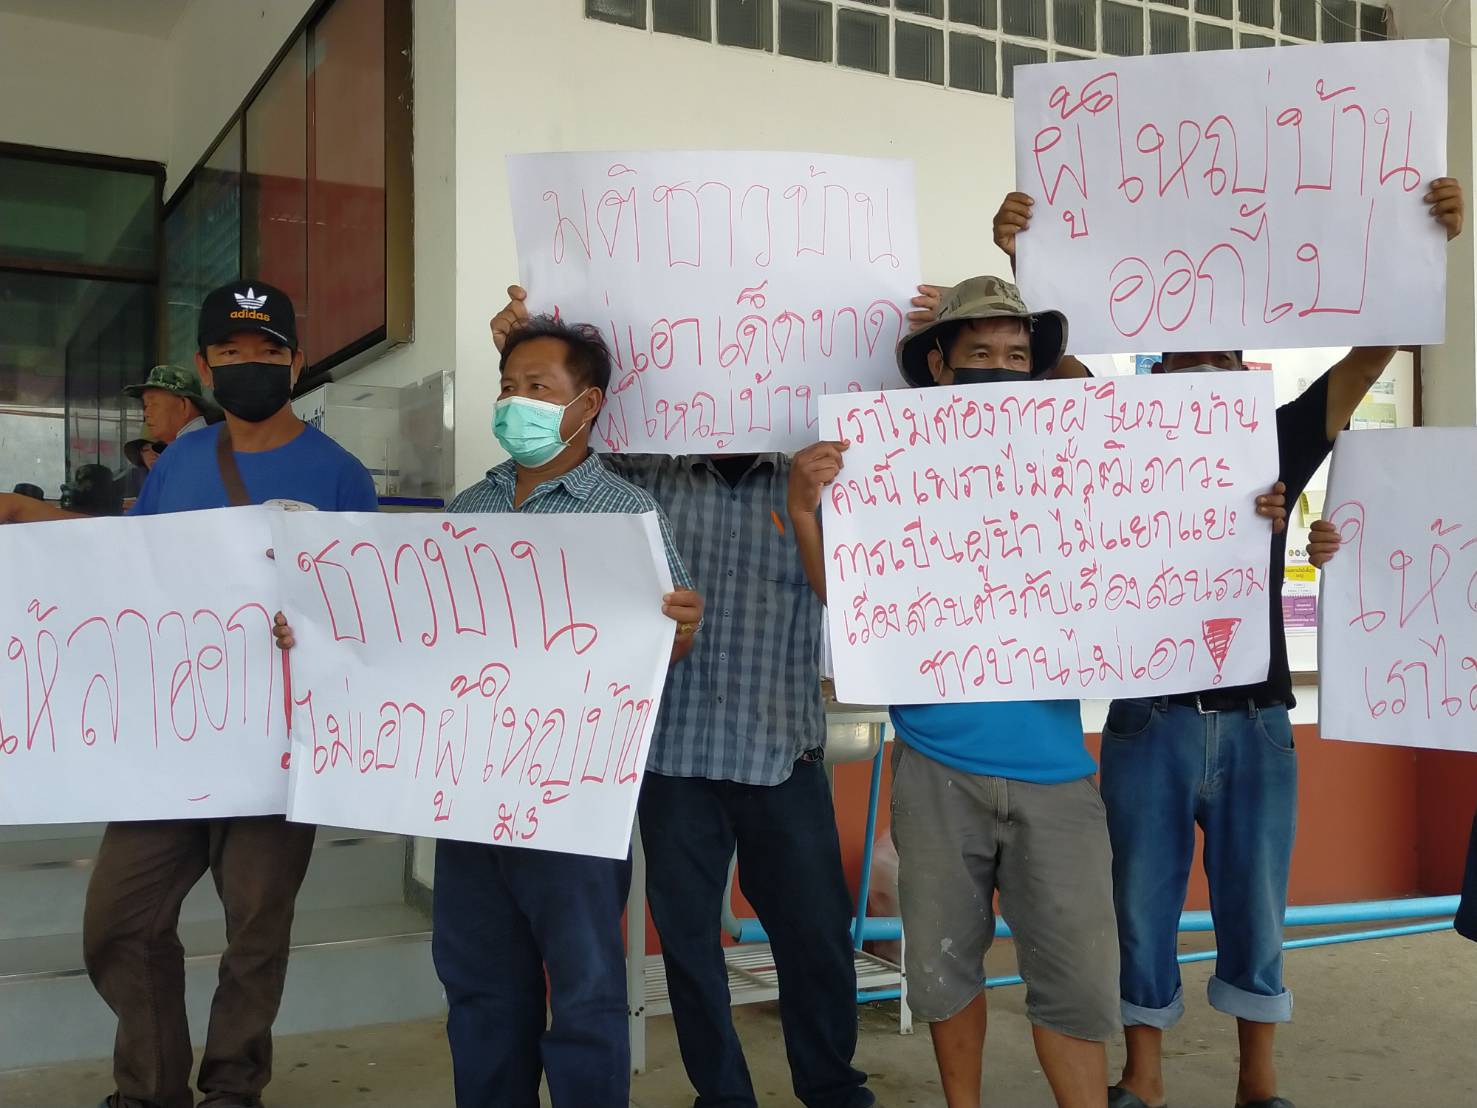 adidas
ให้ลาออก!
ชาวบ้าน
ไม่เอาผู้ใหญ่บ้าน
ม.3
มติชาวบ้าน
เอาเด็ดขาด
ผู้ใหญ่บ้าน
เราไม่ต้องการผู้ใหญ่บ้าน
คนนี้ เพราะไม่มีวุฒิภาวะ
การเป็นผู้นำ ไม่แยกแยะ
เรื่องส่วนตัวกับเรื่องส่วนรวม
ชาวบ้านไม่เอา!
ผู้ใหญ่บ้าน
ออกไป
ให้
เราไม่